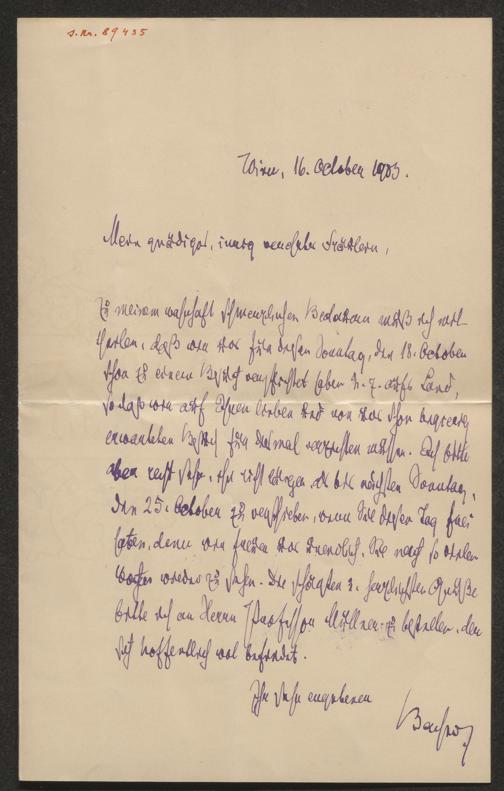 I.Nr. 89435
Wien, 16. October 1903.
Mein gnädiges, innig verehrtes Fräulein,
Zu meinem wahrhaft schmerzlichen Bedauern muß ich mit-
theilen, daß wir uns für diesen Sonntag, den 18. October
schon zu einem Besuch versprochen haben u. z. aufs Land,
sodaß wir auf Ihren lieben und von uns schon
erwarteten Besuch für diesmal verzichten müssen. Ich bitte
aber recht sehr, ihn nicht länger als bis nächsten Sonntag,
den 25. October zu verschieben, wenn Sie diesen Tag frei
haben, denn wir freuen uns unendlich, Sie nach so vielen
Wochen wieder zu sehn. Die schönsten u. herzlichsten Grüße
bitte ich an Herrn Professor Müllner zu bestellen, der
sich hoffentlich wol befindet.
Ihr sehr ergebener